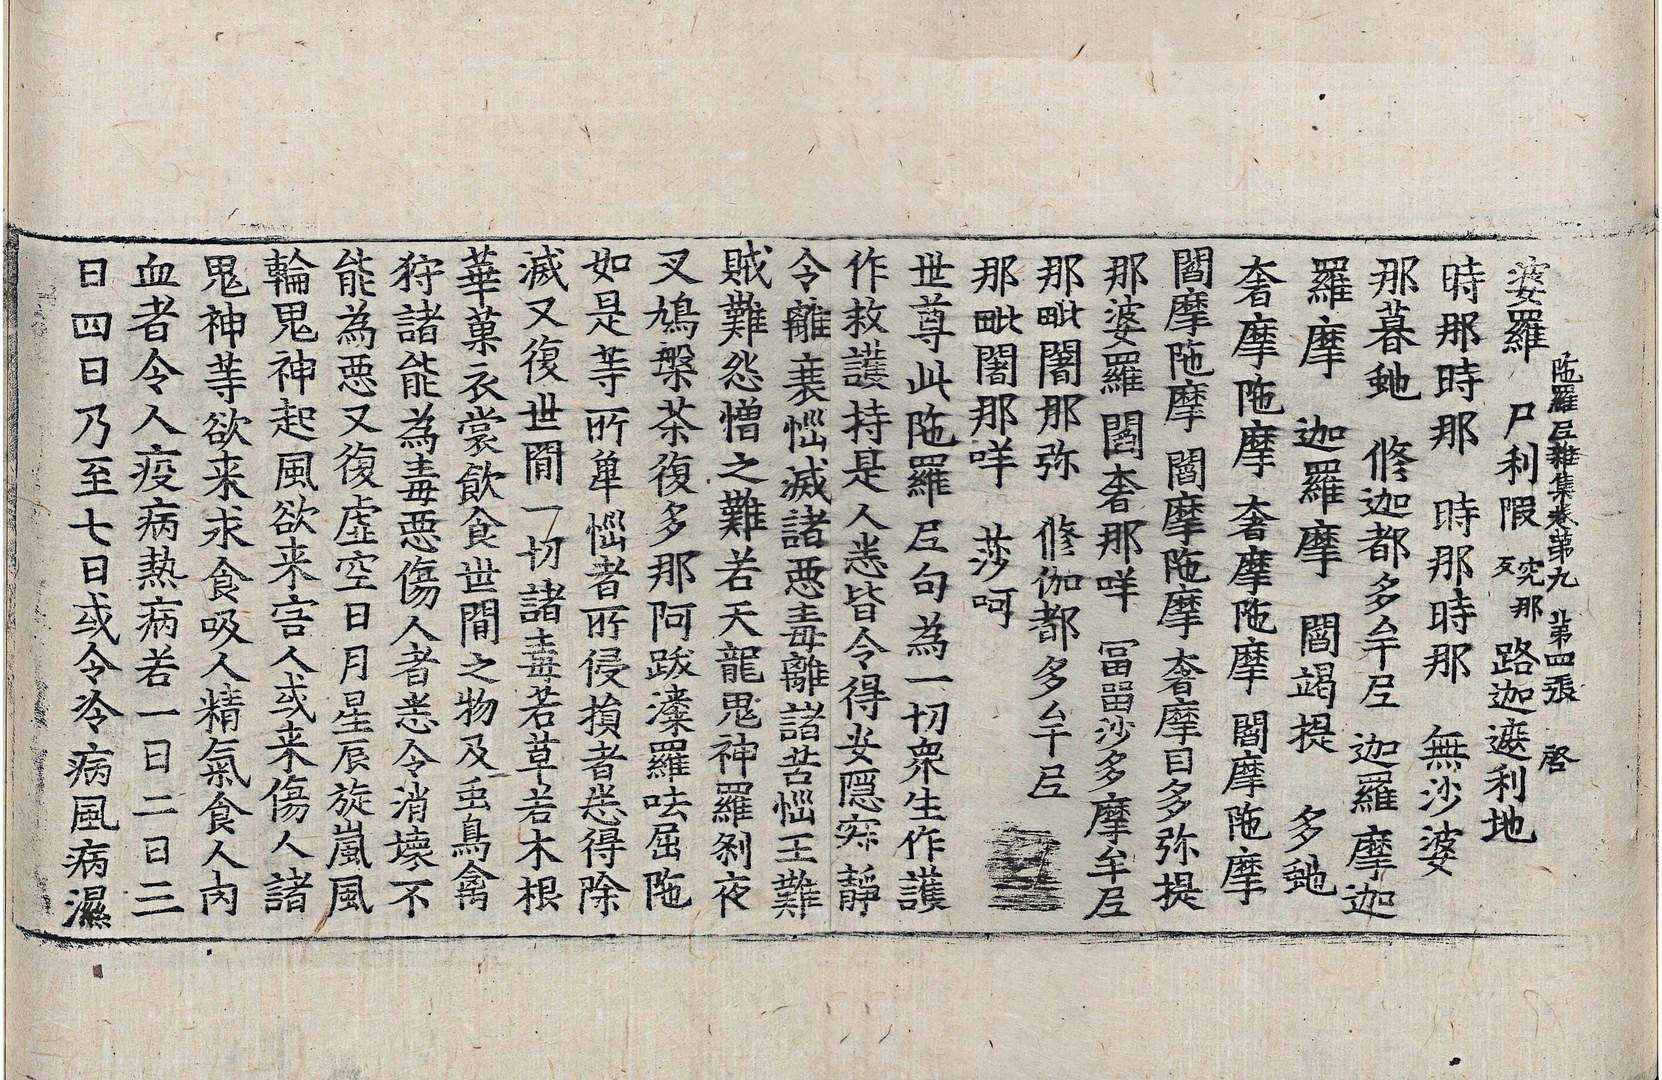 陁羅𡰱雜集卷第九 第四張 啓
婆羅 尸利假 究那反 路迦遮利地
時那時那 時那時那 無沙婆
那暮虵 修迦都多牟𡰱 迦羅摩迦
羅摩 迦羅摩 閻竭提 多虵
奢摩陁摩 奢摩陁摩 閻摩陁摩
閻摩陁摩 閻摩陁摩 奢摩目多弥提
那婆羅閻奢那咩 冨留沙多摩牟𡰱
那毗闍那弥 修伽都多牟𡰱
那毗闍那咩 莎呵
世尊此陁羅𡰱句為一切衆生作護
作救護持是人悉皆令得安隠寂靜
令離衰惱滅諸惡毒離諸苦惱王難
賊難怨憎之難若天龍鬼神羅刹夜
叉鳩槃茶復多那阿跋濹羅呿屈陁
如是等所單惱者所侵損者悉得除
滅又復世間一切諸毒若草若木根
華菓衣裳飲食世間之物及䖝鳥禽
狩諸能為毒惡傷人者悉令消壞不
能為惡又復虛空日月星辰旋嵐風
輪鬼神起風欲来害人或来傷人諸
鬼神等欲来求食吸人精氣食人肉
血者令人疫病熱病若一日二日三
日四日乃至七日或令冷病風病濕